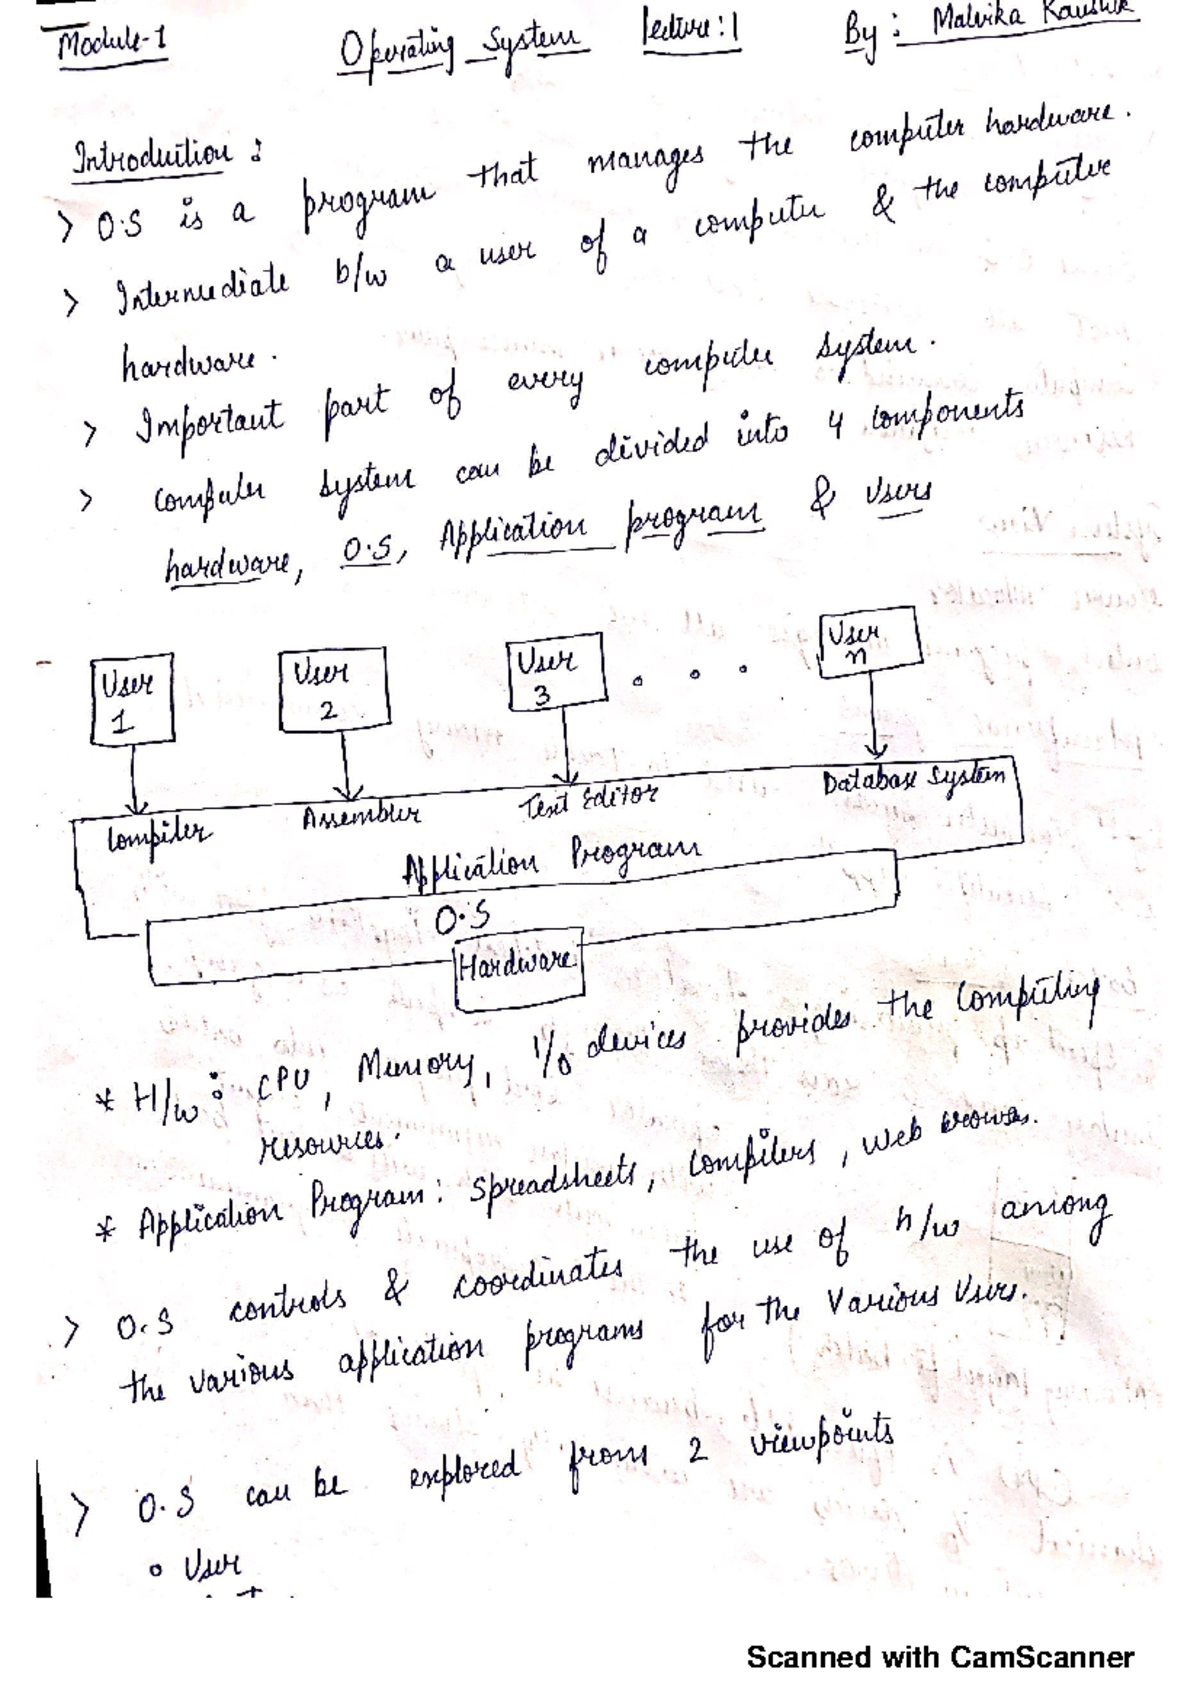 Module-1 Operating System Lecture:1 By: Malvika Kaushik
Introduction :
> O.S is a program that manages the computer hardware.
> Intermediate b/w a user of a computer & the computer
hardware.
> Important part of every computer system.
> Computer system can be divided into 4 components
hardware, O.S, Application program & Users
User 1
User 2
User 3
User n
Compiler Assembler Text Editor Database System
Application Program
O.S
Hardware
* H/w : CPU, Memory, I/O devices provides the Computing
resources.
* Application Program: Spreadsheets, Compilers, Web
> O.S controls & coordinates the use of h/w among
the various application programs for the Various Users.
> O.S can be explored from 2 viewpoints
o User
Scanned with CamScanner